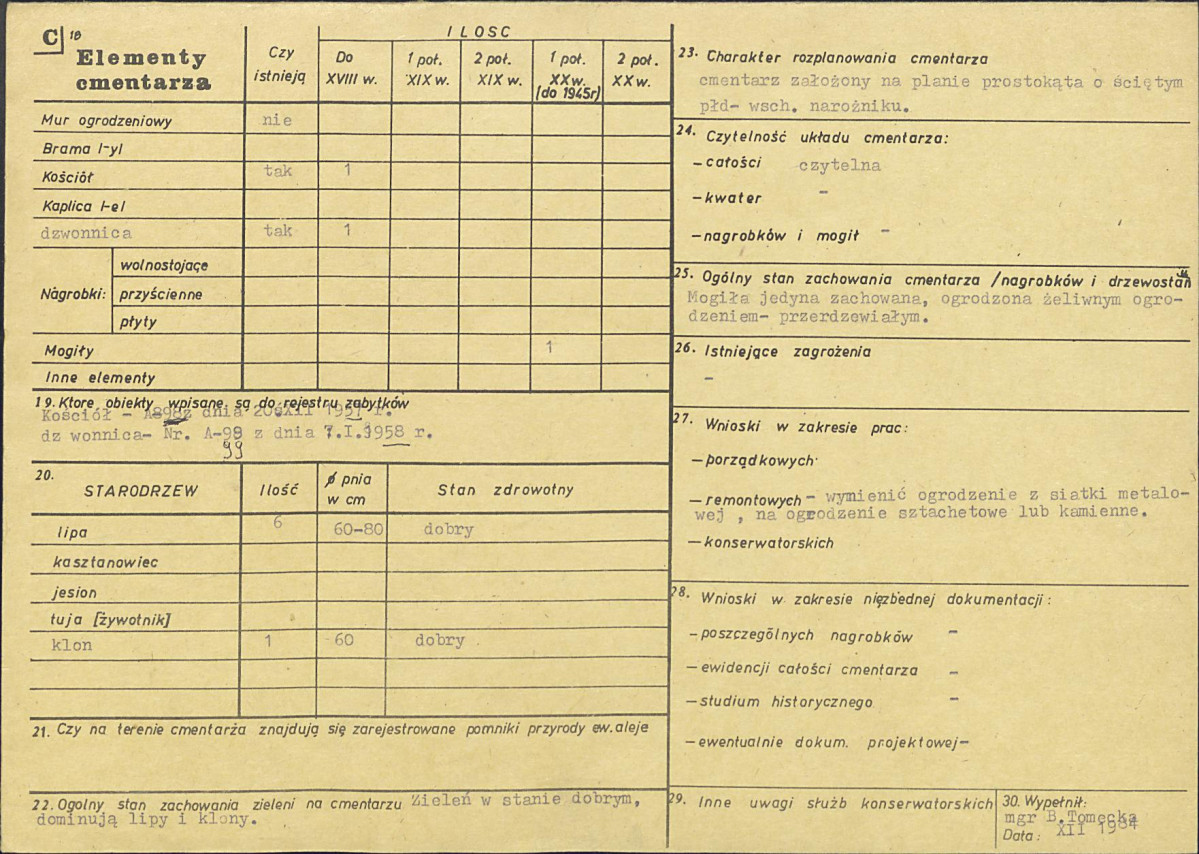 C 18
Elementy
cmentarza
Czy
istnieją
ILOSC
Do
XVIII w.
1 poł.
XIX w.
2 poł.
XIX w.
1 poł.
XXw.
(do 1945r)
2 poł.
XXw.
Mur ogrodzeniowy nie
Brama /-y/
Kościół tak 1
Kaplica /-e/
dzwonnica tak 1
Nagrobki:
wolnostojące
przyścienne
płyty
Mogiły 1
Inne elementy
19. Ktore obiekty wpisane są do rejestru zabytków
Kościół - A898z dnia 20 XII 1957 r.
dz wonnica- Nr. A-98 z dnia 7.I.1958 r.
99
20.
STARODRZEW
Ilość
ø pnia
w cm
Stan zdrowotny
lipa 6 60-80 dobry
kasztanowiec
jesion
tuja [żywotnik]
klon 1 60 dobry
21. Czy na terenie cmentarza znajdują się zarejestrowane pomniki przyrody ew. aleje
22. Ogolny stan zachowania zieleni na cmentarzu Zieleń w stanie dobrym,
dominują lipy i klony.
23. Charakter rozplanowania cmentarza
cmentarz założony na planie prostokąta o ściętym
płd- wsch. narożniku.
24. Czytelność układu cmentarza:
- całości czytelna
- kwater -
- nagrobków i mogił -
25. Ogólny stan zachowania cmentarza /nagrobków i drzewostan
Mogiła jedyna zachowana, ogrodzona żeliwnym ogro-
dzeniem- przerdzewiałym.
26. Istniejące zagrożenia
-
27. Wnioski w zakresie prac:
- porządkowych
- remontowych - wymienić ogrodzenie z siatki metalo-
wej , na ogrodzenie sztachetowe lub kamienne.
- konserwatorskich
28. Wnioski w zakresie niezbednej dokumentacji:
- poszczególnych nagrobków -
- ewidencji całości cmentarza -
- studium historycznego -
- ewentualnie dokum. projektowej-
29. Inne uwagi służb konserwatorskich
30. Wypełnił:
mgr B.Tomecka
Data: XII 1984